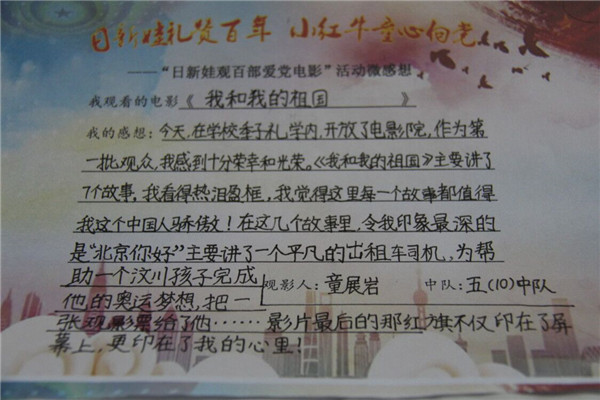 日新娃礼赞百年 小红牛童心向党
——“日新娃观百部爱党电影”活动微感想
我观看的电影《 我和我的祖国 》
我的感想：今天，在学校季子礼学内，开放了电影院，作为第
一批观众，我感到十分荣幸和光荣。《我和我的祖国》主要讲了
7个故事，我看得热泪盈框，我觉得这里每一个故事都值得
我这个中国人骄傲！在这几个故事里，令我印象最深的
是“北京你好”主要讲了一个平凡的出租车司机，为帮
助一个汶川孩子完成
观影人：童展岩 中队：五(10)中队
他的奥运梦想，把一
张观影票给了他……影片最后的那红旗不仅印在了屏
幕上，更印在了我的心里！